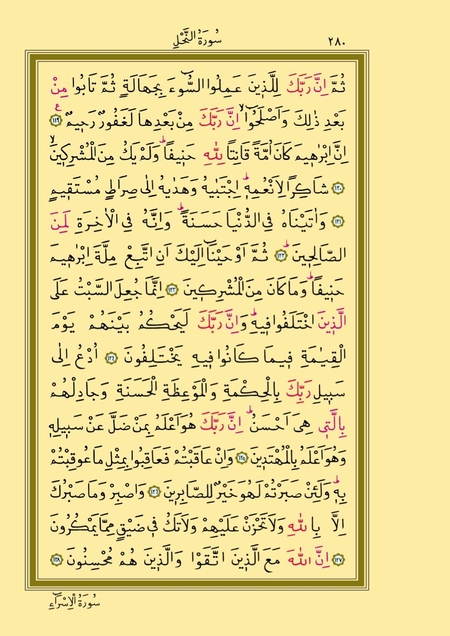 سُورَةُ النَّحْلِ ٢٨٠
ثُمَّ اِنَّ رَبَّكَ لِلَّذ۪ينَ عَمِلُوا السُّٓوءَ بِجَهَالَةٍ ثُمَّ تَابُوا مِنْ
بَعْدِ ذٰلِكَ وَاَصْلَحُٓواۙ اِنَّ رَبَّكَ مِنْ بَعْدِهَا لَغَفُورٌ رَح۪يمٌ۟ ﴿١١٩﴾
اِنَّ اِبْرٰه۪يمَ كَانَ اُمَّةً قَانِتًا لِلّٰهِ حَن۪يفًاۜ وَلَمْ يَكُ مِنَ الْمُشْرِك۪ينَۙ
﴿١٢٠﴾ شَاكِرًا لِاَنْعُمِهِۜ اِجْتَبٰيهُ وَهَدٰيهُ اِلٰى صِرَاطٍ مُسْتَق۪يمٍ
﴿١٢١﴾ وَاٰتَيْنَاهُ فِي الدُّنْيَا حَسَنَةًۜ وَاِنَّهُ فِي الْاٰخِرَةِ لَمِنَ
الصَّالِح۪ينَۜ ﴿١٢٢﴾ ثُمَّ اَوْحَيْنَٓا اِلَيْكَ اَنِ اتَّبِعْ مِلَّةَ اِبْرٰه۪يمَ
حَن۪يفًاۜ وَمَا كَانَ مِنَ الْمُشْرِك۪ينَ ﴿١٢٣﴾ اِنَّمَا جُعِلَ السَّبْتُ عَلَى
الَّذ۪ينَ اخْتَلَفُوا ف۪يهِۜ وَاِنَّ رَبَّكَ لَيَحْكُمُ بَيْنَهُمْ يَوْمَ
الْقِيٰمَةِ ف۪يمَا كَانُوا ف۪يهِ يَخْتَلِفُونَ ﴿١٢٤﴾ اُدْعُ اِلٰى
سَب۪يلِ رَبِّكَ بِالْحِكْمَةِ وَالْمَوْعِظَةِ الْحَسَنَةِ وَجَادِلْهُمْ
بِالَّت۪ي هِيَ اَحْسَنُۜ اِنَّ رَبَّكَ هُوَ اَعْلَمُ بِمَنْ ضَلَّ عَنْ سَب۪يلِه۪
وَهُوَ اَعْلَمُ بِالْمُهْتَد۪ينَ ﴿١٢٥﴾ وَاِنْ عَاقَبْتُمْ فَعَاقِبُوا بِمِثْلِ مَا عُوقِبْتُمْ
بِه۪ۜ وَلَئِنْ صَبَرْتُمْ لَهُوَ خَيْرٌ لِلصَّابِر۪ينَ ﴿١٢٦﴾ وَاصْبِرْ وَمَا صَبْرُكَ
اِلَّا بِاللّٰهِ وَلَا تَحْزَنْ عَلَيْهِمْ وَلَا تَكُ ف۪ي ضَيْقٍ مِمَّا يَمْكُرُونَ
﴿١٢٧﴾ اِنَّ اللّٰهَ مَعَ الَّذ۪ينَ اتَّقَوْا وَالَّذ۪ينَ هُمْ مُحْسِنُونَ ﴿١٢٨﴾
سُورَةُ الْاِسْرَٓاءِ